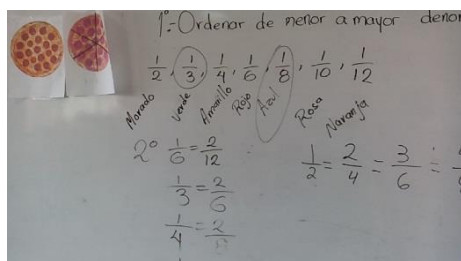 1º.-Ordenar de menor a mayor denom
1/2, 1/3, 1/4, 1/6, 1/8, 1/10, 1/12
Morado Verde Amarillo Rojo Azul Rosa Naranja
2º 1/6=2/12
1/3=2/6
1/4=2/8
1/2=2/4=3/6=